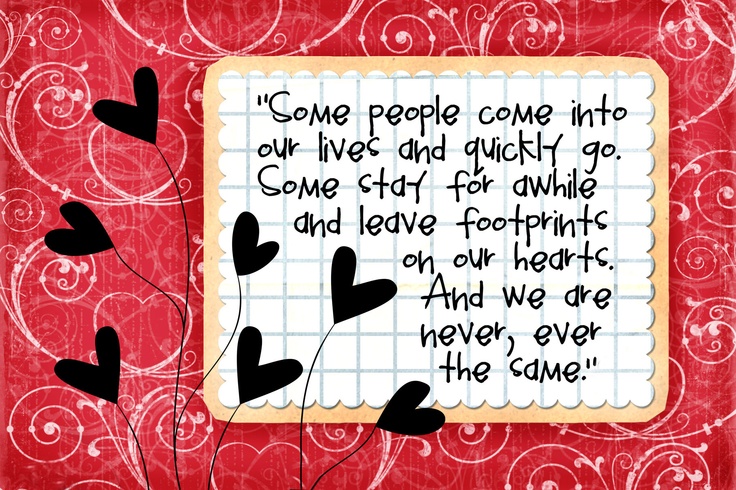 "Some people come into
our lives and quickly go.
Some stay for awhile
and leave footprints
on our hearts.
And we are
never, ever
the same."